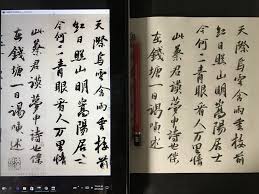 天際烏雲含雨重樓前
紅日照山明嵩陽居士
今何在青眼看人萬里情
此蔡君謨夢中詩也僕
在錢塘一日謁陳述
天際烏雲含雨重樓前
紅日照山明嵩陽居士
今何在青眼看人萬里情
此蔡君謨夢中詩也僕
在錢塘一日謁陳述